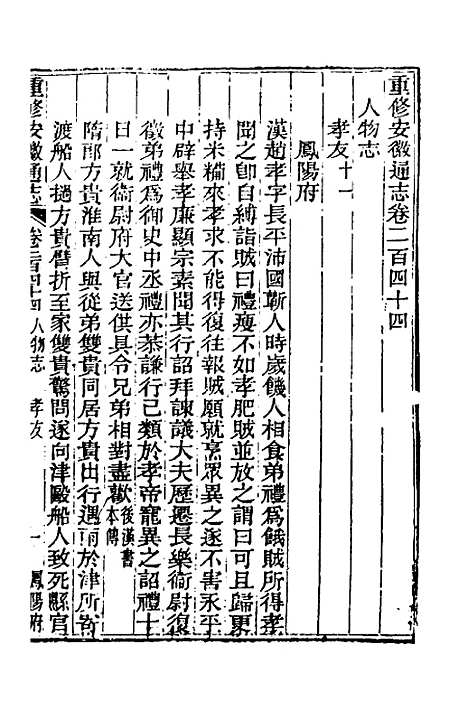 重修安徽通志卷二百四十四
人物志
孝友十一
鳳陽府
漢趙孝字長平沛國蘄人時歲饑人相食弟禮爲餓賊所得孝
聞之卽自縛詣賊曰禮瘦不如孝肥賊並放之謂曰可且歸更
持米糒來孝求不能得復往報賊願就烹眾異之遂不害永平
中辟舉孝廉顯宗素聞其行詔拜諫議大夫歷遷長樂衞尉復
徵弟禮爲御史中丞禮亦恭謙行已類於孝帝寵異之詔禮十
日一就衞尉府大官送供具令兄弟相對盡歡後漢書本傳
隋郎方貴淮南人與從弟雙貴同居方貴出行遇雨於津所寄
渡船人撾方貴臂折至家雙貴驚問遂向津毆船人致死縣官
重修安徽通志 卷二百四十四 人物志 孝友 一 鳳陽府